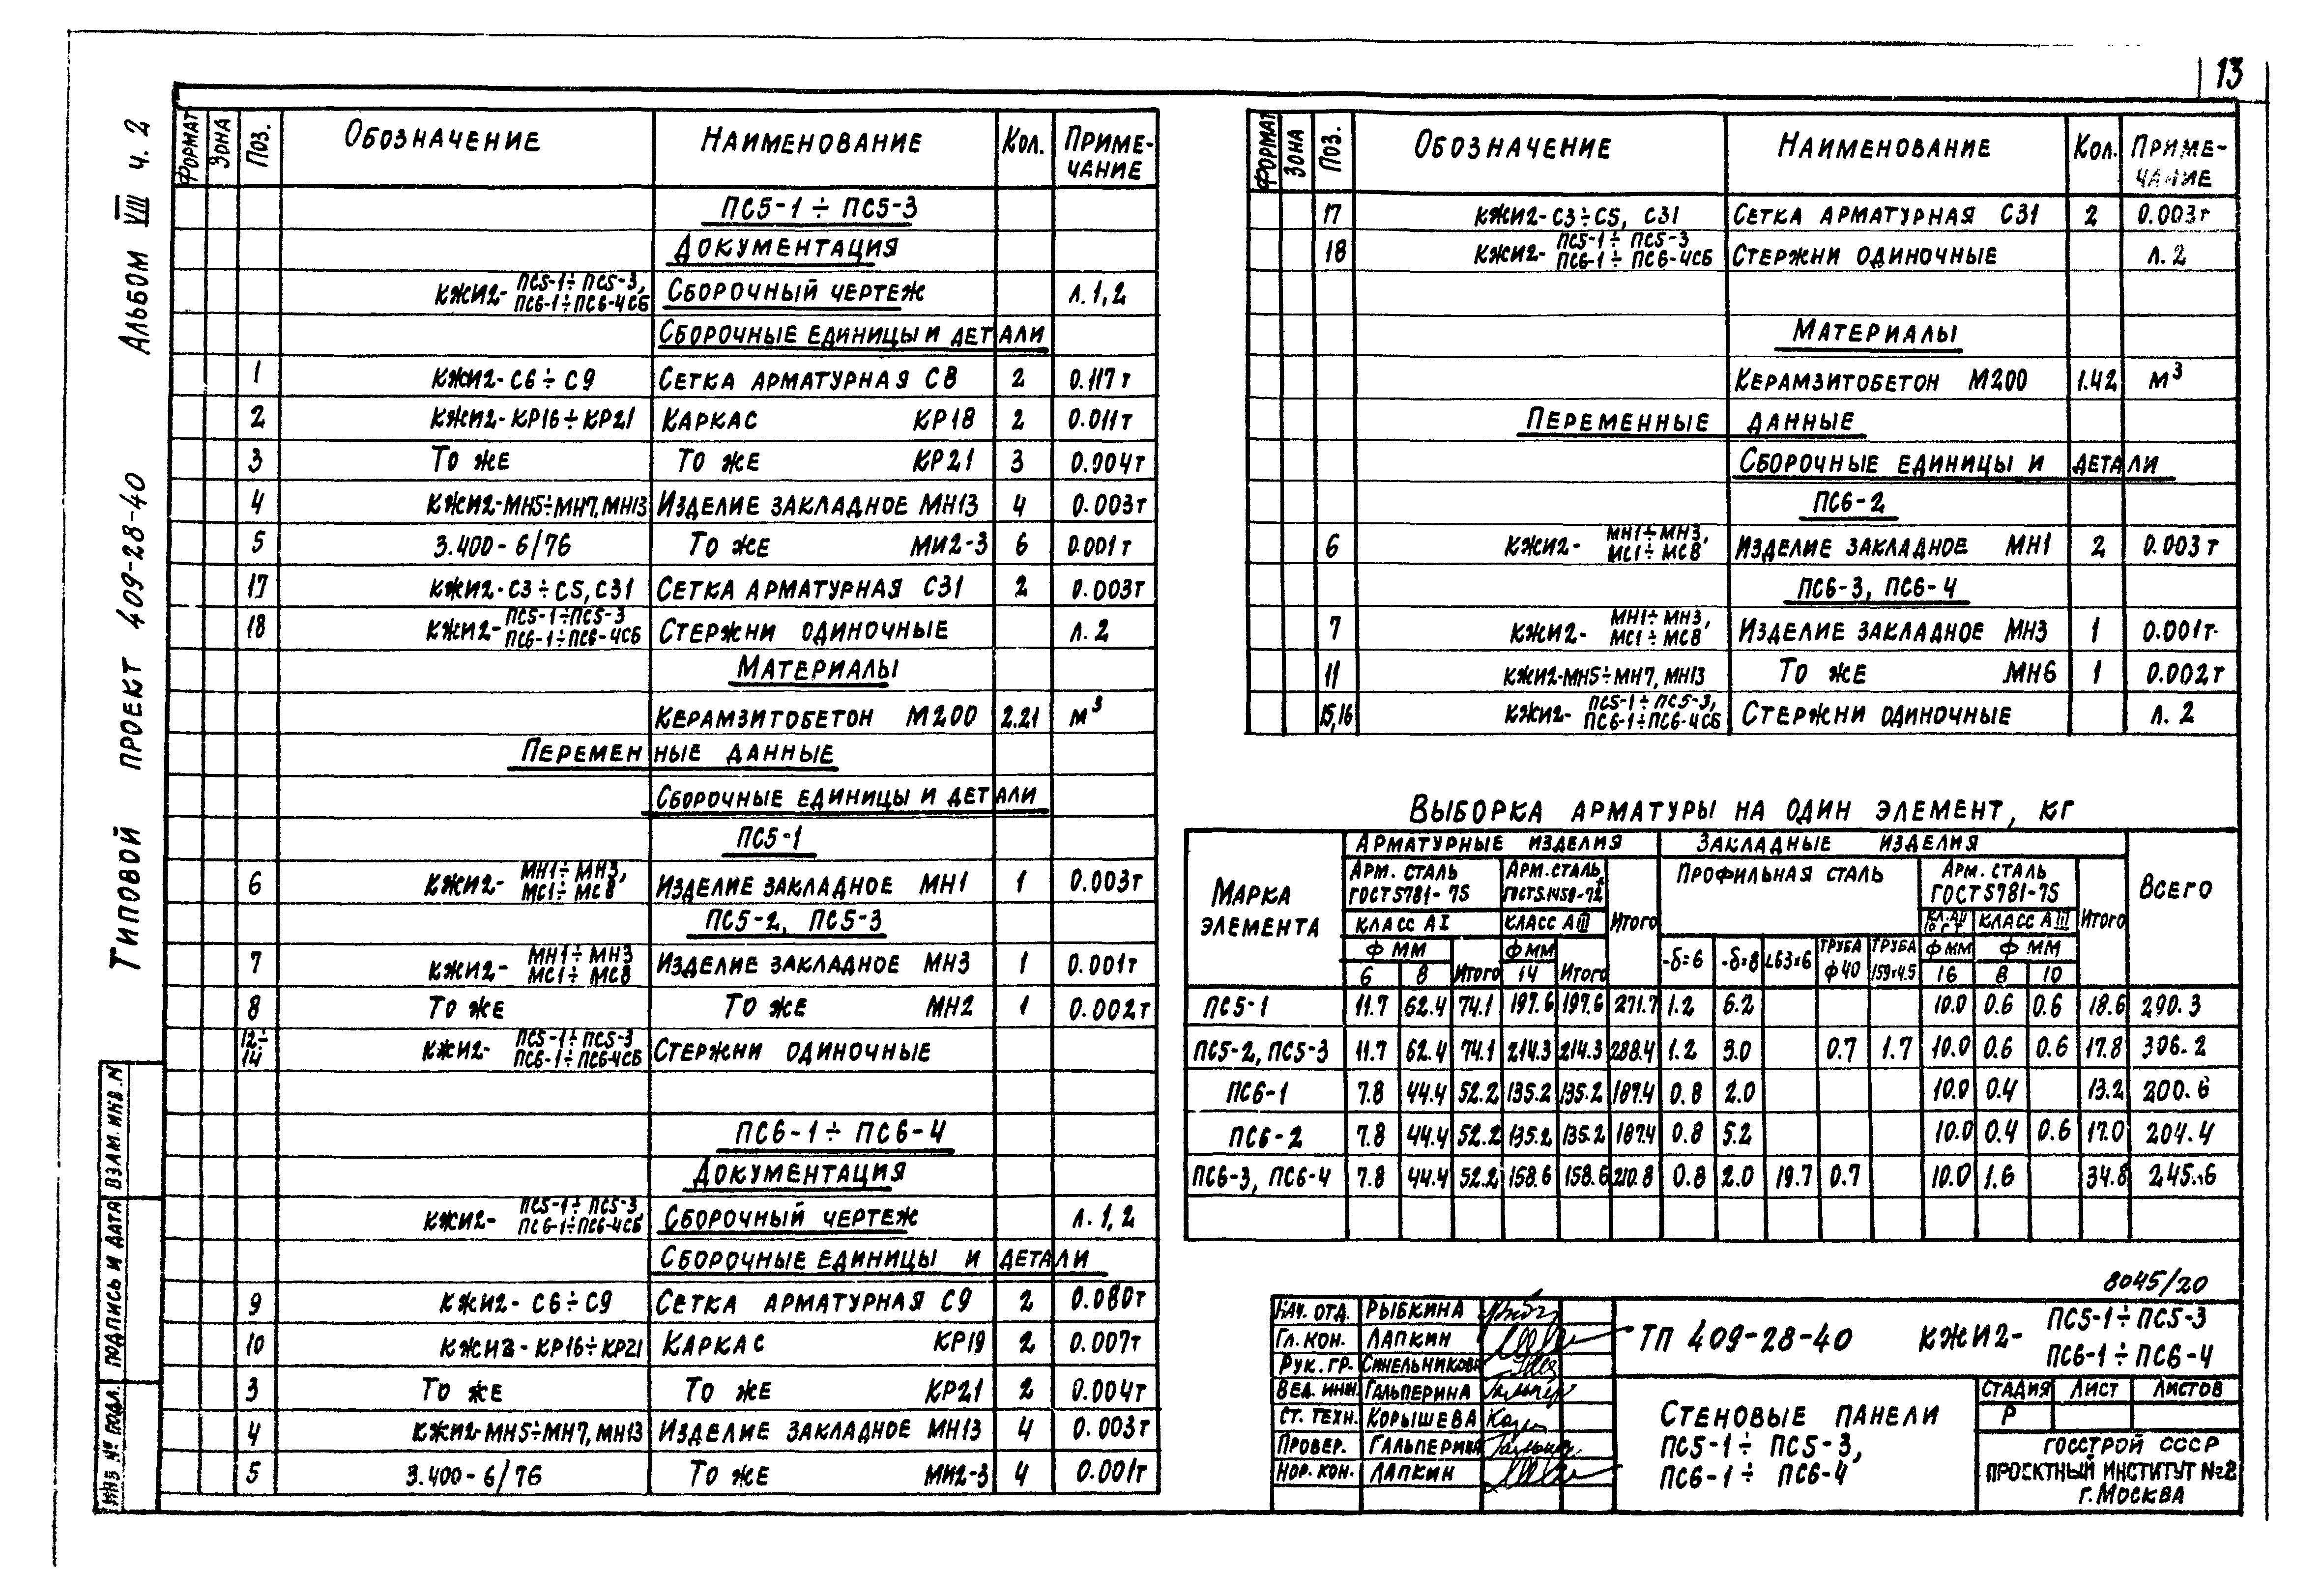 13
Альбом VIII ч. 2
Типовой проект 409-28-40
ИНВ. № подл. Подпись и дата Взам. инв. N
Формат Зона Поз. Обозначение Наименование Кол. Приме-чание
ПС5-1 ÷ ПС5-3
Документация
КЖИ2- ПС5-1÷ПС5-3, ПС6-1÷ПС6-4СБ Сборочный чертеж л.1,2
Сборочные единицы и детали
1 КЖИ2-С6÷С9 Сетка арматурная С8 2 0.117т
2 КЖИ2-КР16÷КР21 Каркас КР18 2 0.011т
3 То же То же КР21 3 0.004т
4 КЖИ2-МН5÷МН7, МН13 Изделие закладное МН13 4 0.003т
5 3.400-6/76 То же МИ2-3 6 0.001т
17 КЖИ2-С3÷С5, С31 Сетка арматурная С31 2 0.003т
18 КЖИ2- ПС5-1÷ПС5-3 ПС6-1÷ПС6-4СБ Стержни одиночные л.2
Материалы
Керамзитобетон М200 2.21 м³
Переменные данные
Сборочные единицы и детали
ПС5-1
6 КЖИ2- МН1÷МН3, МС1÷МС8 Изделие закладное МН1 1 0.003т
ПС5-2, ПС5-3
7 КЖИ2- МН1÷МН3 МС1÷МС8 Изделие закладное МН3 1 0.001т
8 То же То же МН2 1 0.002т
12÷14 КЖИ2- ПС5-1÷ПС5-3 ПС6-1÷ПС6-4СБ Стержни одиночные
ПС6-1÷ ПС6-4
Документация
КЖИ2- ПС5-1÷ПС5-3 ПС6-1÷ПС6-4СБ Сборочный чертеж л.1,2
Сборочные единицы и детали
9 КЖИ2-С6÷С9 Сетка арматурная С9 2 0.080т
10 КЖИ2-КР16÷КР21 Каркас КР19 2 0.007т
3 То же То же КР21 2 0.004т
4 КЖИ2-МН5÷МН7, МН13 Изделие закладное МН13 4 0.003т
5 3.400-6/76 То же МИ2-3 4 0.001т
Формат Зона Поз. Обозначение Наименование Кол. Приме-чание
17 КЖИ2-С3÷С5, С31 Сетка арматурная С31 2 0.003т
18 КЖИ2- ПС5-1÷ПС5-3 ПС6-1÷ПС6-4СБ Стержни одиночные л.2
Материалы
Керамзитобетон М200 1.42 м³
Переменные данные
Сборочные единицы и детали
ПС6-2
6 КЖИ2- МН1÷МН3, МС1÷МС8 Изделие закладное МН1 2 0.003т
ПС6-3, ПС6-4
7 КЖИ2- МН1÷МН3, МС1÷МС8 Изделие закладное МН3 1 0.001т
11 КЖИ2-МН5÷МН7, МН13 То же МН6 1 0.002т
15,16 КЖИ2- ПС5-1÷ПС5-3, ПС6-1÷ПС6-4СБ Стержни одиночные л.2
Выборка арматуры на один элемент, кг
Марка элемента Арматурные изделия Закладные изделия Всего
Арм. сталь ГОСТ 5781-75 Арм. сталь Итого Профильная сталь Арм. сталь ГОСТ 5781-75 Итого
Класс АI Класс АIII Кл. АII Класс АIII
ф мм ф мм -δ=6 -δ=8 L63×6 Труба ф40 Труба 159×4.5 ф мм ф мм
6 8 Итого 14 Итого 16 8 10
ПС5-1 11.7 62.4 74.1 197.6 197.6 271.7 1.2 6.2 10.0 0.6 0.6 18.6 290.3
ПС5-2, ПС5-3 11.7 62.4 74.1 214.3 214.3 288.4 1.2 3.0 0.7 1.7 10.0 0.6 0.6 17.8 306.2
ПС6-1 7.8 44.4 52.2 135.2 135.2 187.4 0.8 2.0 10.0 0.4 13.2 200.6
ПС6-2 7.8 44.4 52.2 135.2 135.2 187.4 0.8 5.2 10.0 0.4 0.6 17.0 204.4
ПС6-3, ПС6-4 7.8 44.4 52.2 158.6 158.6 210.8 0.8 2.0 19.7 0.7 10.0 1.6 34.8 245.6
8045/20
Нач. отд. Рыбкина
Гл. кон. Лапкин
Рук. гр. Синельникова
Вед. инж. Гальперина
Ст. техн. Корышева
Провер. Гальперина
Нор. кон. Лапкин
ТП 409-28-40 КЖИ2- ПС5-1÷ПС5-3 ПС6-1÷ПС6-4
Стеновые панели
ПС5-1÷ ПС5-3,
ПС6-1÷ ПС6-4
Стадия Лист Листов
Р
Госстрой СССР
Проектный институт №2
г. Москва